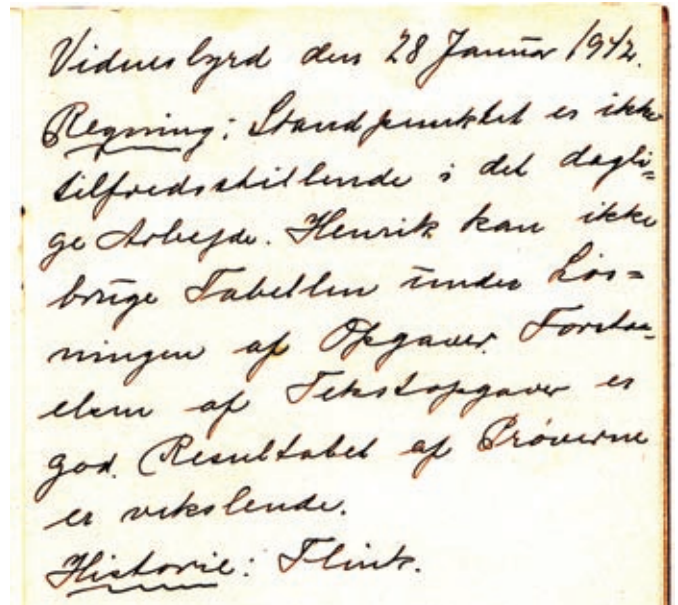 Vidnesbyrd den 28 Januar 1942.
Regning: Standpunktet er ikke
tilfredsstillende i det dagli=
ge Arbejde. Henrik kan ikke
bruge Tabellen under Løs=
ningen af Opgaver. Forstaa=
elsen af Tekstopgaver er
god. Resultatet af Prøverne
er vekslende.
Historie: Flink.